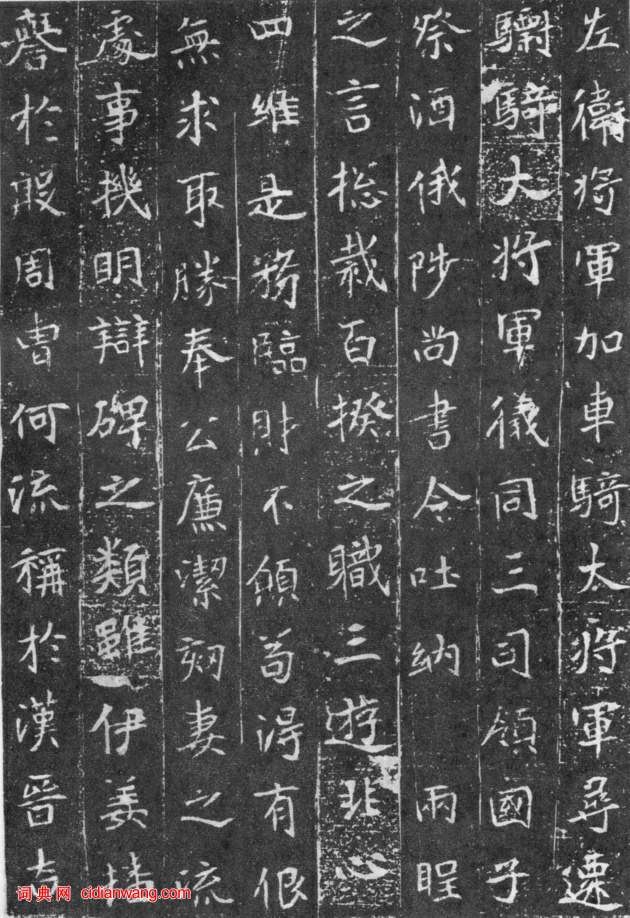 左衛將軍加車騎大將軍尋遷
驃騎大將軍儀同三司領國子
祭酒俄陟尚書令吐納 兩眐
之言揔裁百揆之職三遊非心
四維是務臨財不傾苟淂有佷
無求取勝奉公廉潔剏妻之流
處事機明辯碑之類雖伊姜
譽於殷周曺何流稱於漢晉
词典网 cidianwang.com